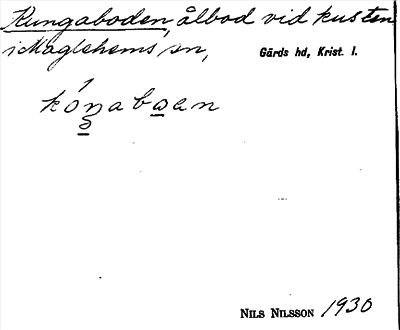 Kungaboden, ålbod vid kusten
i Maglehems sn,
Gärds hd, Krist. l.
NILS NILSSON 1930